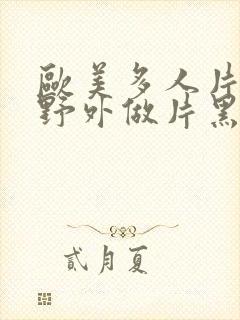 歐美多人片
野外做片黑
貳月夏